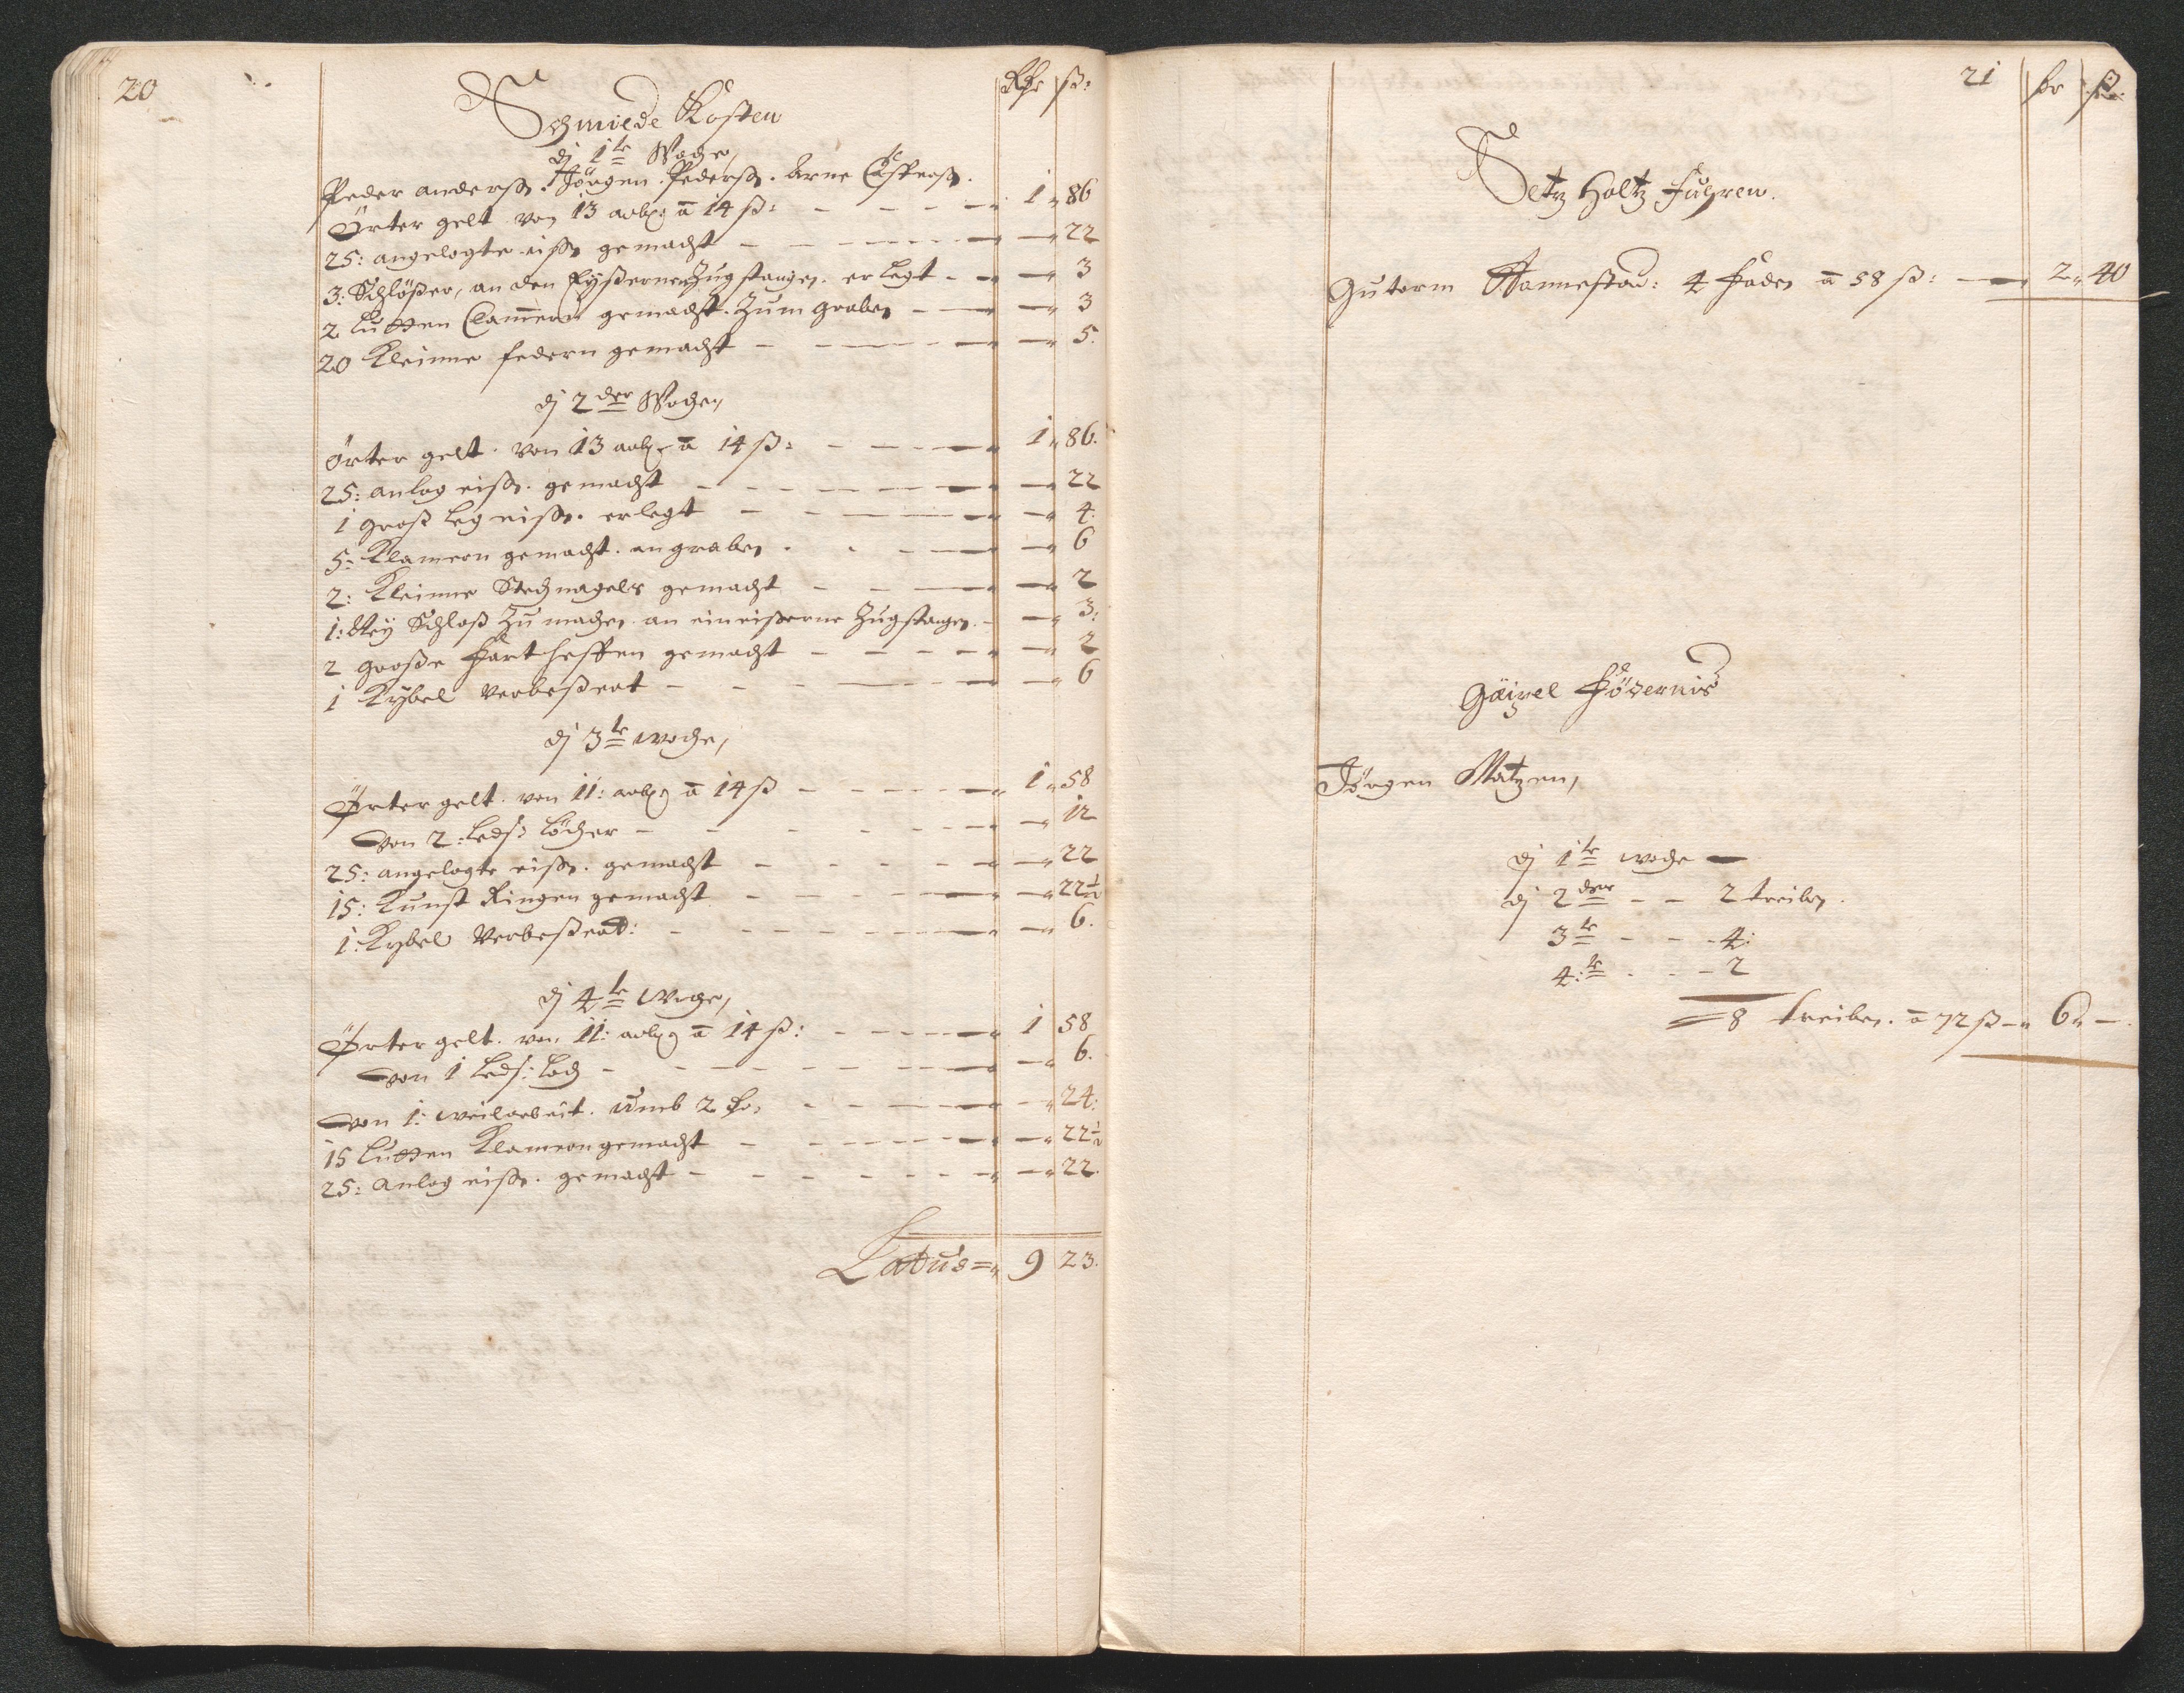 20
Rthr ß:
Schmiede Kosten
dj 1te Woche,
Peder anderß. Jörgen Pederß. Arne
Örter gelt von 13 arb: a 14 ß: 1 86
25: angelegte eiß. gemacht 22
3: Schlößer, an den Eyßernen Zugstangen erlegt 3
2 Lutten Clamern gemacht. Zum graben 3
20 Kleinne federn gemacht 5.
dj 2der Wochen,
Örter gelt. von 13 arb: a 14 ß: 1 86.
25: anlag eiß. gemacht 22
1 groß leg eiß. erlegt 4.
5: Klamern gemacht. an graben 6
2: Kleinne Stechnagels gemacht 2
1: Schloß Zu machen an ein eißerne Zugstangen 3:
2 große gemacht 2
1 Kybel Verbeßert 6
dj 3te woche,
Örter gelt. von 11: arb: a 14 ß 1 58
Von 2: Löcher 12
25: angelegte eiß. gemacht 22
15: Kunst Ringen gemacht 22½
1: Kybel Verbeßert: 6.
dj 4te Woche,
Örter gelt. von 11: arb: a 14 ß: 1 58
Von 1 Loch 6.
Von 1: weilarbeit. umb 2 24:
15 Lutten Klamern gemacht 22½
25: anlag eiß. gemacht 22.
Latus 9 23.
21 ß:
Setz Holtz Fuhren.
Guterm Hannestad: 4 Faden a 58 ß: 2 40
Gäipel Födernis
Jörgen Matzen,
dj 1te woche —
dj 2der - - 2 treiben.
3te - - - 4:
4:te - - - 2
8 treiben. a 72 ß 6 —.